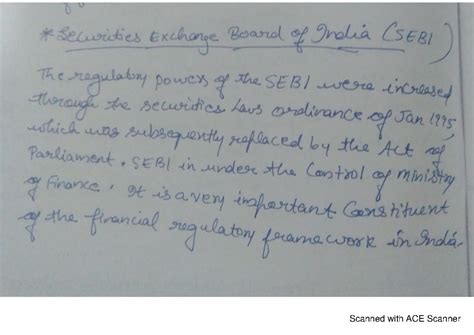 * Securities Exchange Board of India (SEBI)
The regulatory powers of the SEBI were increased
through the securities Laws ordinance of Jan 1995
which was subsequently replaced by the Act of
Parliament. SEBI in under the Control of ministry
of Finance. It is a very important Constituent
of the financial regulatory framework in India.
Scanned with ACE Scanner